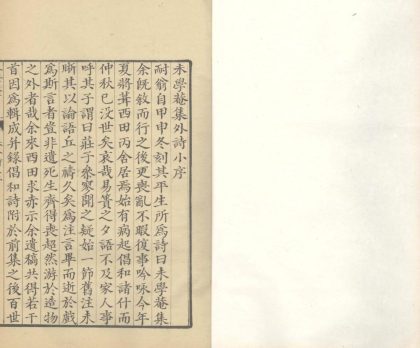 未學庵集外詩小序
耐翁自甲申冬刻其平生所為詩曰未學庵集
余既敘而行之後更喪亂不暇復事吟咏今年
夏將葺西田丙舍居焉始有病起倡和諸什而
仲秋已沒世矣哀哉易簀之夕語不及家人事
呼其子謂曰莊子叅寥聞之疑始一節舊注未
晰其以論語丘之禱久矣為注言畢而逝於戲
為斯言者豈非遺死生齊得喪超然游於造物
之外者哉余來西田求赤示余遺稿共得若干
首因為輯成并錄倡和詩附於前集之後百世